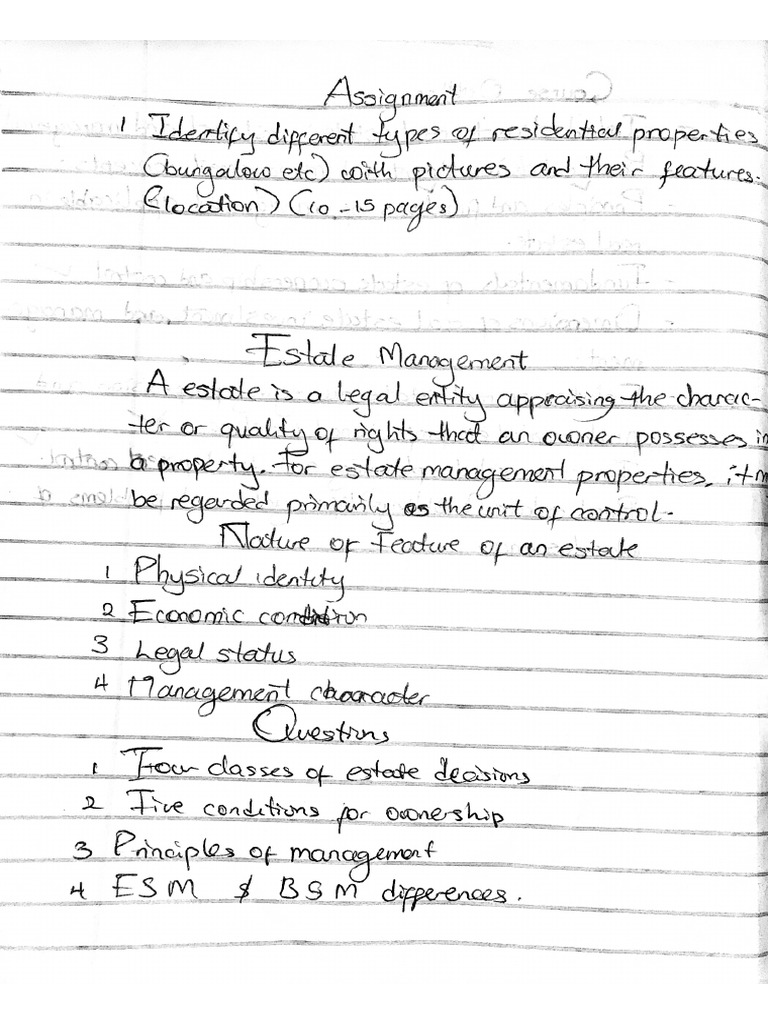 Assignment
1 Identify different types of residential properties
(bungalow etc) with pictures and their features.
(location) (10-15 pages)
Estate Management
A estate is a legal entity appraising the charac-
ter or quality of rights that an owner possesses in
a property. For estate management properties, it m
be regarded primarily as the unit of control.
Nature of Feature of an estate
1 Physical identity
2 Economic condition
3 Legal status
4 Management character
Questions
1 Four classes of estate decisions
2 Five conditions for ownership
3 Principles of management
4 ESM & BSM differences.